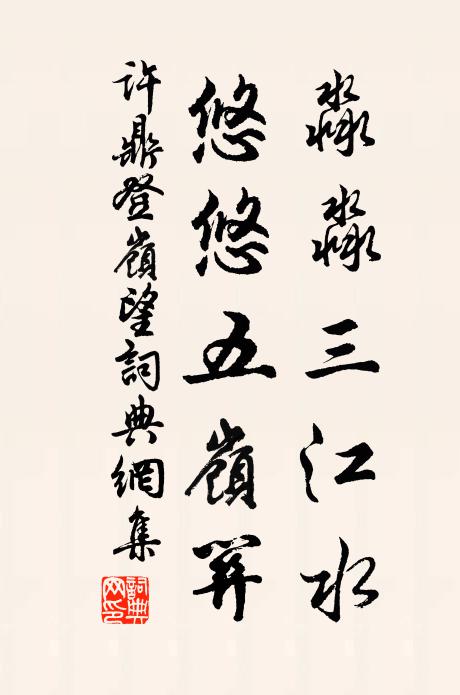 淼淼三江水
悠悠五嶺關
許鼎登嶺望詞典網集
詞典网印